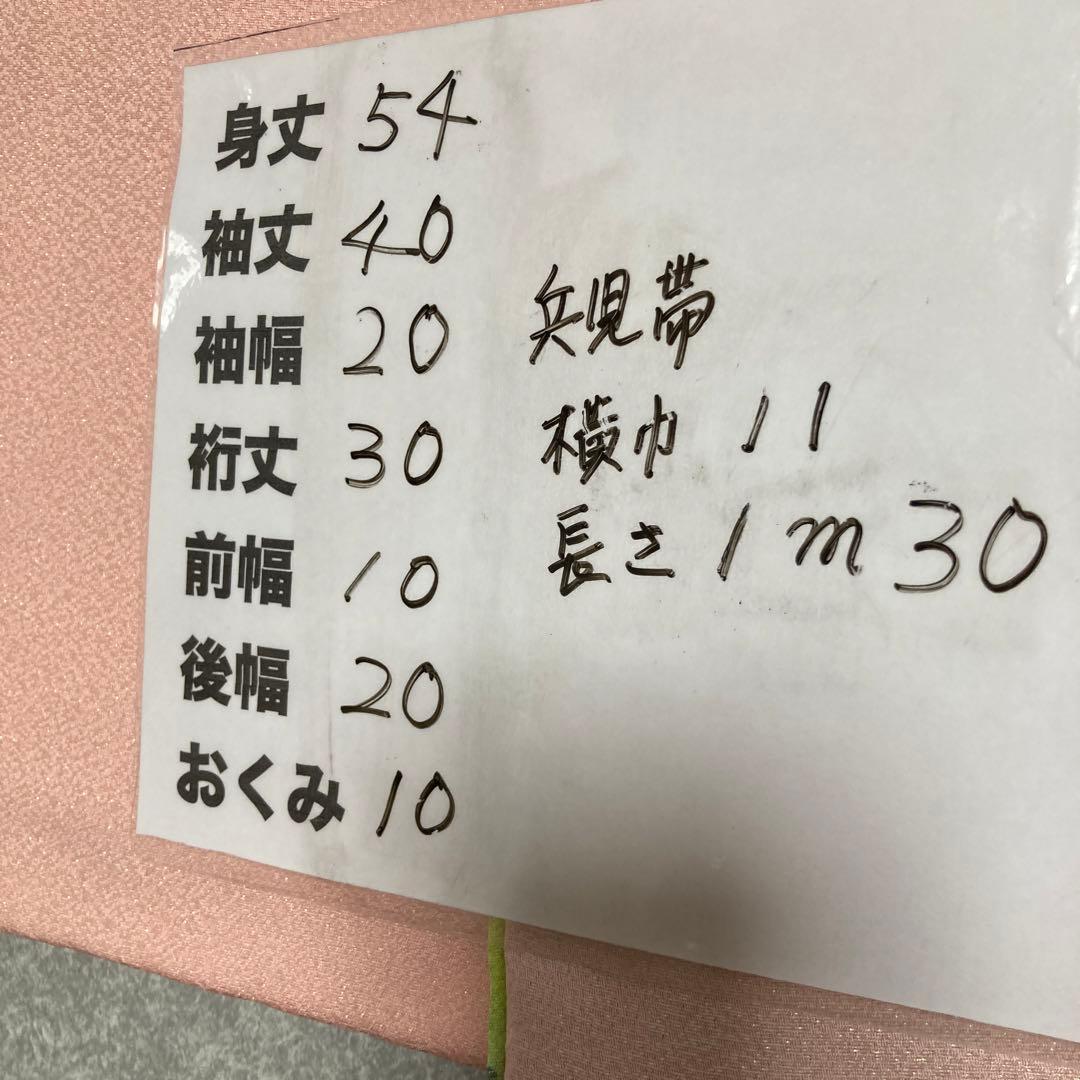 身丈 54
袖丈 40
袖幅 20
裄丈 30
前幅 10
後幅 20
おくみ 10
兵児帯
横巾 11
長さ 1m30